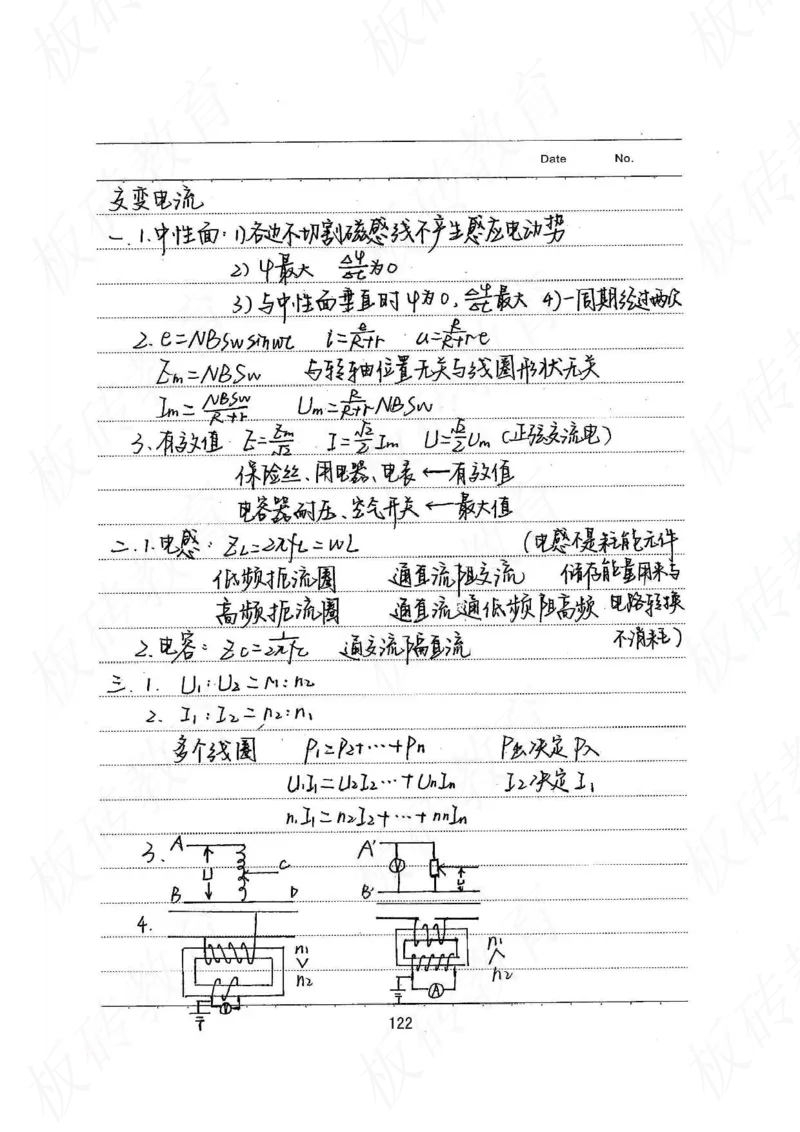 Date No.
交变电流
一.1.中性面:1)各边不切割磁感线不产生感应电动势
2)φ最大 Δφ/Δt为0
3)与中性面垂直时φ为0,Δφ/Δt最大 4)一周期经过两次
2.e=NBSwsinwt i=e/R+r u=R/R+r e
Em=NBSw 与转轴位置无关与线圈形状无关
Im=NBSw/R+r Um=R/R+r NBSw
3.有效值 E=Em/√2 I=√2/2 Im U=√2/2 Um (正弦交流电)
保险丝、用电器、电表←有效值
电容器耐压、空气开关←最大值
二.1.电感:ZL=2πfL=wL (电感不是耗能元件
低频扼流圈 通直流阻交流 储存能量用来与
高频扼流圈 通直流通低频阻高频 电路转换
2.电容:Zc=1/2πfc 通交流隔直流 不消耗)
三.1. U1:U2=n1:n2
2. I1:I2=n2:n1
多个线圈 P1=P2+…+Pn P出决定P入
U1I1=U2I2…+UnIn I2决定I1
n1I1=n2I2+…+nnIn
3. A U B C D A' V B' U
4. n1 > n2 V n1 < n2 A
122
板砖教育